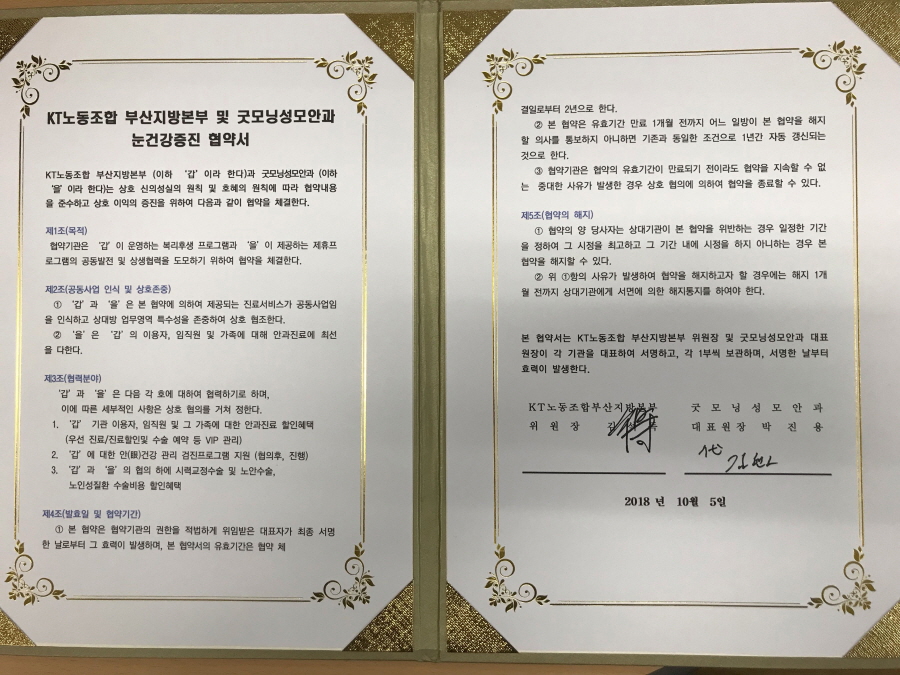 KT노동조합 부산지방본부 및 굿모닝성모안과
눈건강증진 협약서
KT노동조합 부산지방본부 (이하 '갑' 이라 한다)과 굿모닝성모안과 (이하
'을' 이라 한다)는 상호 신의성실의 원칙 및 호혜의 원칙에 따라 협약내용
을 준수하고 상호 이익의 증진을 위하여 다음과 같이 협약을 체결한다.
제1조(목적)
협약기관은 '갑' 이 운영하는 복리후생 프로그램과 '을' 이 제공하는 제휴프
로그램의 공동발전 및 상생협력을 도모하기 위하여 협약을 체결한다.
제2조(공동사업 인식 및 상호존중)
① '갑' 과 '을' 은 본 협약에 의하여 제공되는 진료서비스가 공동사업임
을 인식하고 상대방 업무영역 특수성을 존중하여 상호 협조한다.
② '을' 은 '갑' 의 이용자, 임직원 및 가족에 대해 안과진료에 최선
을 다한다.
제3조(협력분야)
'갑' 과 '을' 은 다음 각 호에 대하여 협력하기로 하며,
이에 따른 세부적인 사항은 상호 협의를 거쳐 정한다.
1. '갑' 기관 이용자, 임직원 및 그 가족에 대한 안과진료 할인혜택
(우선 진료/진료할인및 수술 예약 등 VIP 관리)
2. '갑' 에 대한 안(眼)건강 관리 검진프로그램 지원 (협의후, 진행)
3. '갑' 과 '을' 의 협의 하에 시력교정수술 및 노안수술,
노인성질환 수술비용 할인혜택
제4조(발효일 및 협약기간)
① 본 협약은 협약기관의 권한을 적법하게 위임받은 대표자가 최종 서명
한 날로부터 그 효력이 발생하며, 본 협약서의 유효기간은 협약 체
결일로부터 2년으로 한다.
② 본 협약은 유효기간 만료 1개월 전까지 어느 일방이 본 협약을 해지
할 의사를 통보하지 아니하면 기존과 동일한 조건으로 1년간 자동 갱신되는
것으로 한다.
③ 협약기관은 협약의 유효기간이 만료되기 전이라도 협약을 지속할 수 없
는 중대한 사유가 발생한 경우 상호 협의에 의하여 협약을 종료할 수 있다.
제5조(협약의 해지)
① 협약의 양 당사자는 상대기관이 본 협약을 위반하는 경우 일정한 기간
을 정하여 그 시정을 최고하고 그 기간 내에 시정을 하지 아니하는 경우 본
협약을 해지할 수 있다.
② 위 ①항의 사유가 발생하여 협약을 해지하고자 할 경우에는 해지 1개
월 전까지 상대기관에게 서면에 의한 해지통지를 하여야 한다.
본 협약서는 KT노동조합 부산지방본부 위원장 및 굿모닝성모안과 대표
원장이 각 기관을 대표하여 서명하고, 각 1부씩 보관하며, 서명한 날부터
효력이 발생한다.
KT노동조합부산지방본부
위 원 장
굿모닝성모안과
대표원장 박진용
2018 년 10월 5일